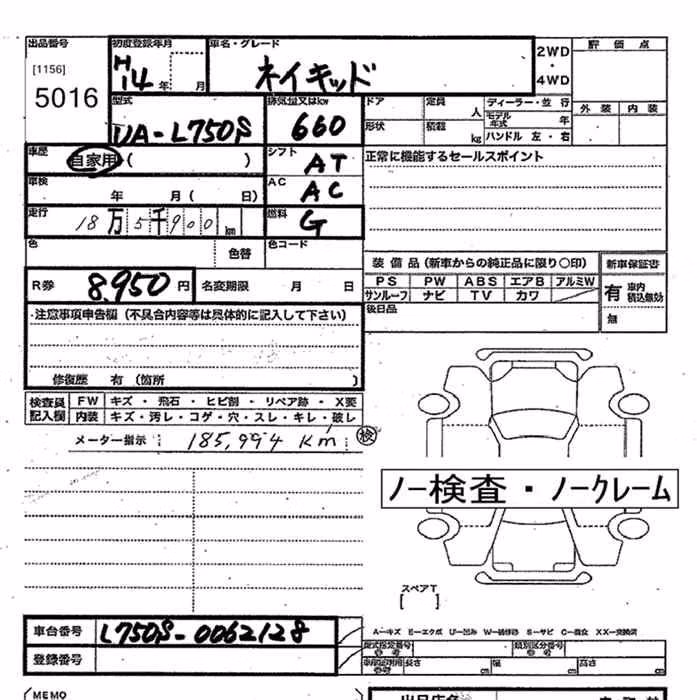 出品番号 初度登録年月 車名・グレード 2WD 評価点
[1156] H14年 月 ネイキッド ・
5016 4WD
型式 排気量又はkw ドア 定員 人 ディーラー・並行 外装 内装
UA-L750S 660 形状 積載 kg モデル年式 年
ハンドル 左・右
車歴 自家用( ) シフト AT 正常に機能するセールスポイント
車検 年 月( 日) AC AC
走行 18万5千900km 燃料 G
色 色替 色コード
装備品(新車からの純正品に限り○印) 新車保証書
R券 8,950円 名変期限 月 日 PS PW ABS エアB アルミW 有 車内積込無効
サンルーフ ナビ TV カワ
後日品 無
注意事項申告欄(不具合内容等は具体的に記入して下さい)
修復歴 有(箇所 )
検査員記入欄 FW キズ・飛石・ヒビ割・リペア跡・X要
内装 キズ・汚レ・コゲ・穴・スレ・キレ・破レ
メーター指示 185,994 km 検
ノー検査・ノークレーム
スペアT
[ ]
車台番号 L750S-0062128
A−キズ E−エクボ U−凹み W−補修跡 S−サビ C−腐食 XX−交換済
型式指定番号 参考 類別区分番号 参考
登録番号 長さ cm 幅 cm 高さ cm
MEMO
出品店名